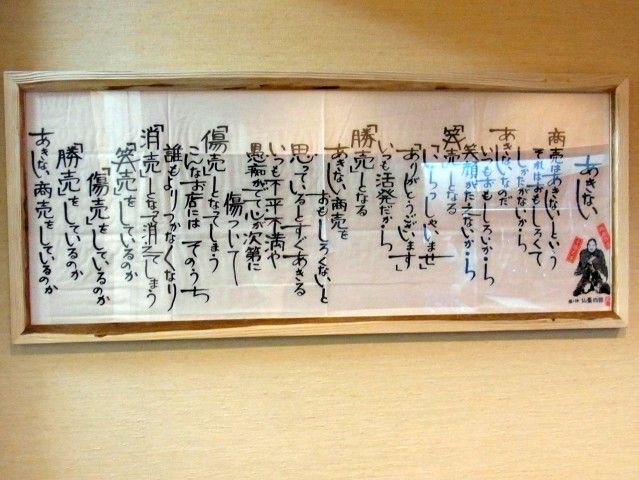 あきない
商売はあきないという
それはおもしろくて
しかたがないから
あきないなのだ
いつもおもしろいから
笑顔がたえないから
「笑売」となる
「いらっしゃいませ」
「ありがとうございます」
いつも活発だから
「勝売」となる
あきない商売を
おもしろくないと
思っているとすぐあきる
いつも不平不満や
愚痴がでて心が次第に
傷ついて
「傷売」となってしまう
こんなお店には そのうち
誰もよりつかなくなり
「消売」となって消えてしまう
「笑売」をしているのか
「傷売」をしているのか
「勝売」をしているのか
あきない商売をしているのか